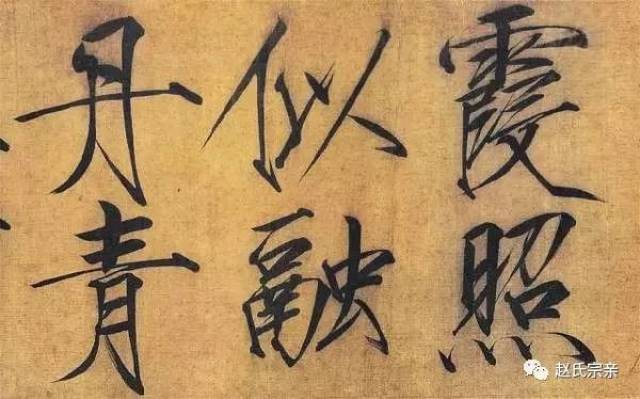 霞照
似融
丹青
赵氏宗亲